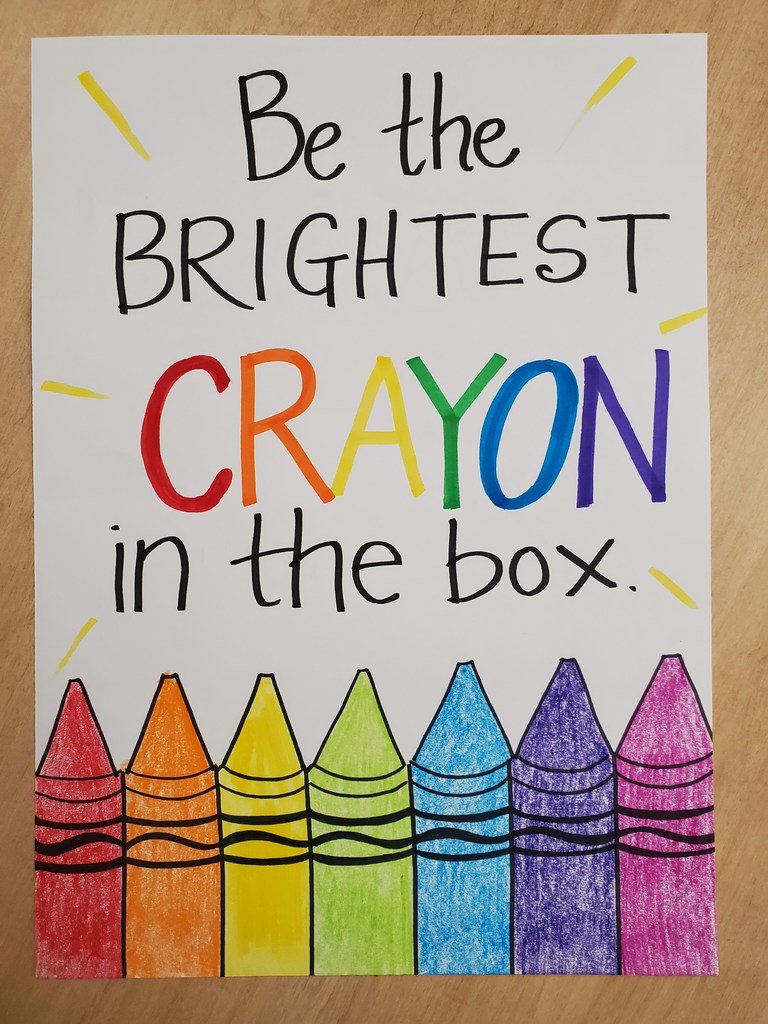 Be the
BRIGHTEST
CRAYON
in the box.